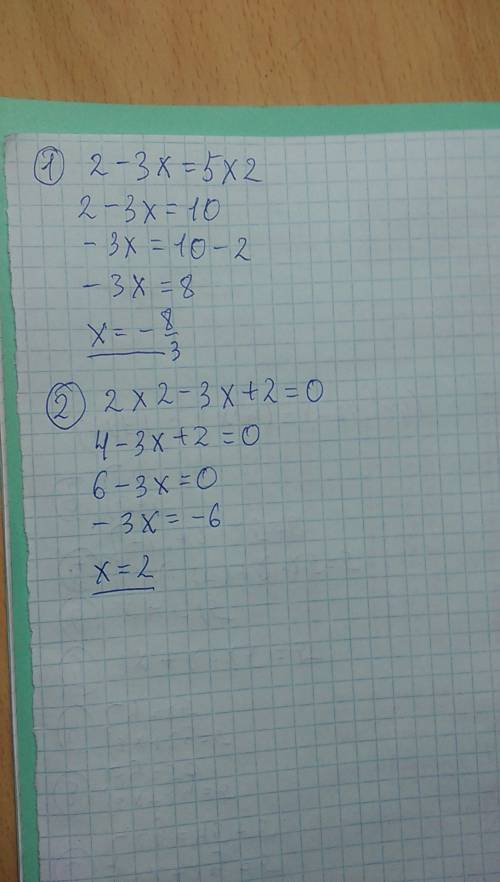 ① 2 - 3x = 5x2
2 - 3x = 10
- 3x = 10 - 2
- 3x = 8
x = - 8/3
② 2x2 - 3x + 2 = 0
4 - 3x + 2 = 0
6 - 3x = 0
- 3x = - 6
x = 2